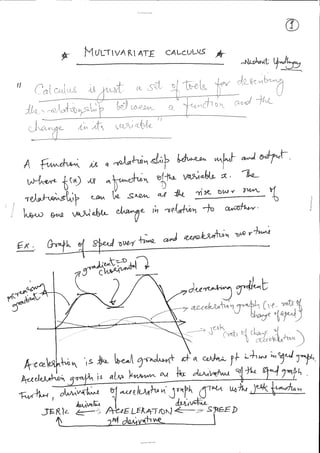 ①
* MULTIVARIATE CALCULUS *
- Nishant Upadhyay
" Calculus is just a set of Tools for describing
the relationship between a function and the
change in its variable "
A Function is a relationship between input and output.
where f(x) is a function of the variable x. The
relationship can be seen as the rise over run of
how one variable change in relation to another.
Ex: Graph of speed over time and acceleration over time
gradient = 0
(horizontal)
increasing
gradient
decreasing gradient
acceleration graph (i.e. rate of
change of speed)
jerk
(rate of change
acceleration)
Acceleration is the local gradient at a certain pt. in time in speed graph.
Acceleration graph is also known as the derivative of the speed graph.
Further, derivative of acceleration graph gives us the jerk function
derivative
derivative
JERK ACCELERATION SPEED
2nd derivative